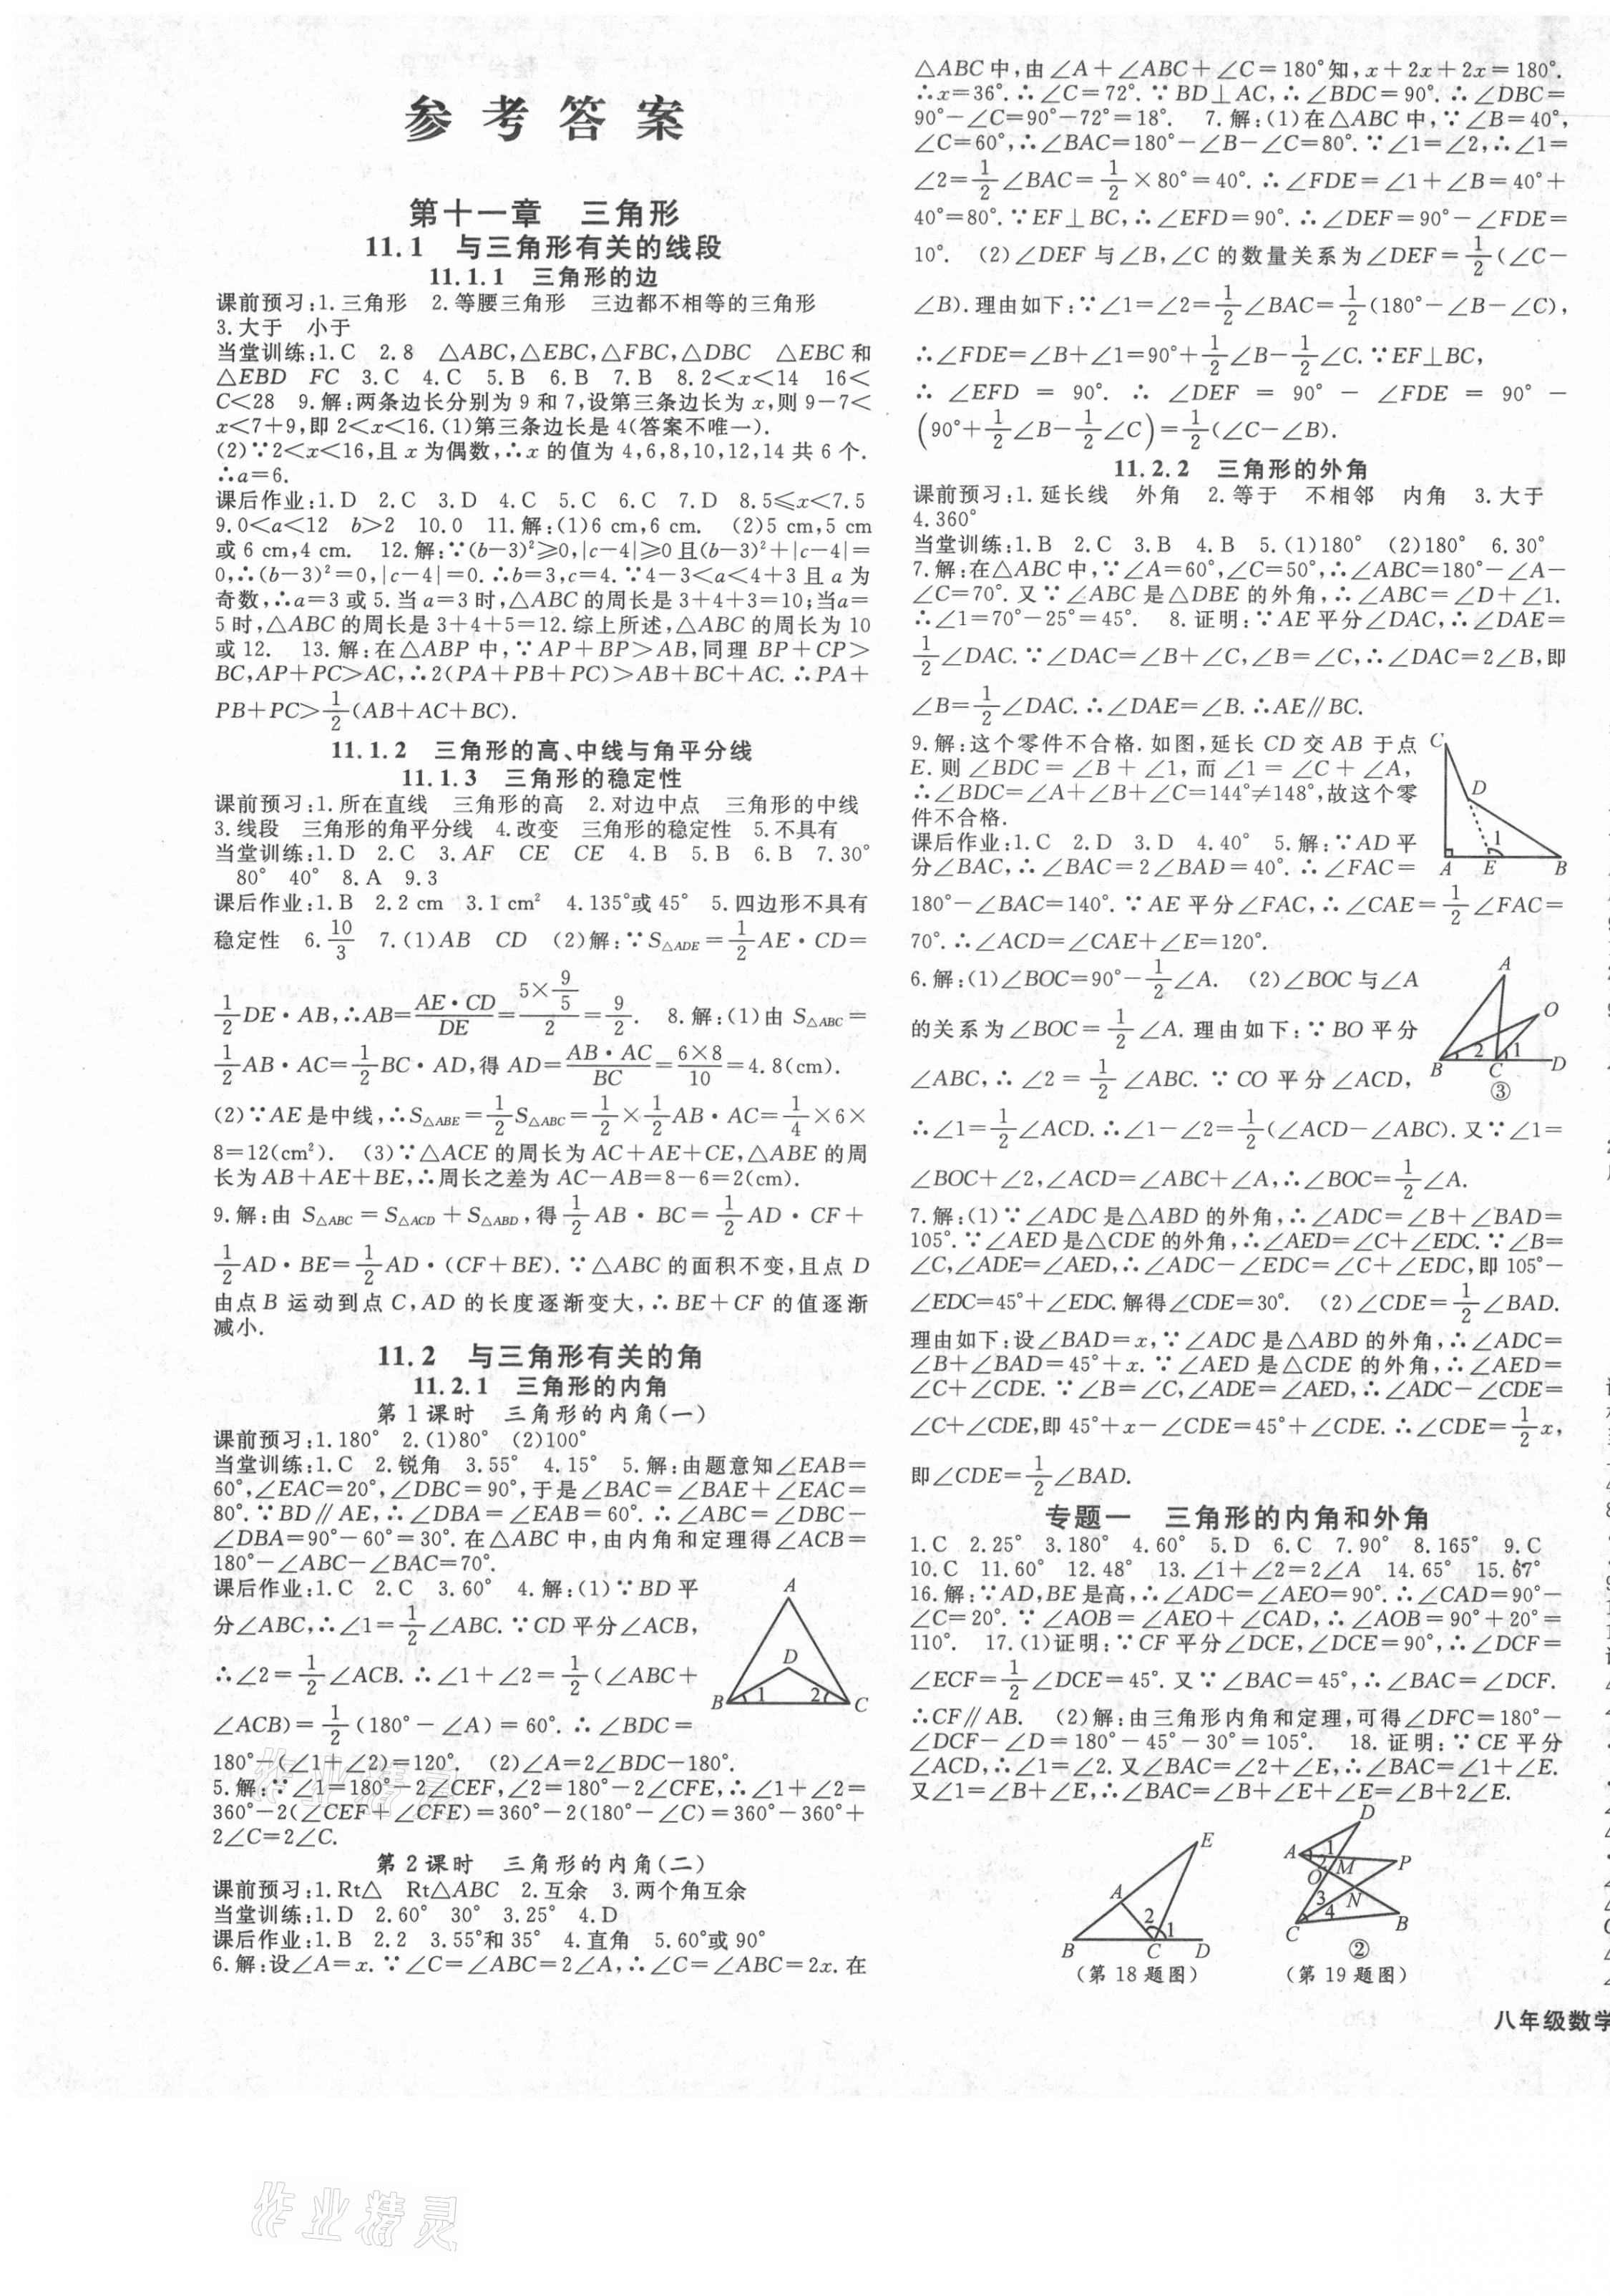 参考答案
第十一章 三角形
11.1 与三角形有关的线段
11.1.1 三角形的边
课前预习:1.三角形 2.等腰三角形 三边都不相等的三角形
3.大于 小于
当堂训练:1.C 2.8 △ABC,△EBC,△FBC,△DBC △EBC和
△EBD FC 3.C 4.C 5.B 6.B 7.B 8.2<x<14 16<
C<28 9.解:两条边长分别为9和7,设第三条边长为x,则9-7<
x<7+9,即2<x<16.(1)第三条边长是4(答案不唯一).
(2)∵2<x<16,且x为偶数,∴x的值为4,6,8,10,12,14共6个.
∴a=6.
课后作业:1.D 2.C 3.D 4.C 5.C 6.C 7.D 8.5≤x<7.5
9.0<a<12 b>2 10.0 11.解:(1)6 cm,6 cm. (2)5 cm,5 cm
或6 cm,4 cm. 12.解:∵(b-3)²≥0,|c-4|≥0且(b-3)²+|c-4|=
0,∴(b-3)²=0,|c-4|=0.∴b=3,c=4.∵4-3<a<4+3且a为
奇数,∴a=3或5.当a=3时,△ABC的周长是3+4+3=10;当a=
5时,△ABC的周长是3+4+5=12.综上所述,△ABC的周长为10
或12. 13.解:在△ABP中,∵AP+BP>AB,同理BP+CP>
BC,AP+PC>AC,∴2(PA+PB+PC)>AB+BC+AC.∴PA+
PB+PC>1/2(AB+AC+BC).
11.1.2 三角形的高、中线与角平分线
11.1.3 三角形的稳定性
课前预习:1.所在直线 三角形的高 2.对边中点 三角形的中线
3.线段 三角形的角平分线 4.改变 三角形的稳定性 5.不具有
当堂训练:1.D 2.C 3.AF CE CE 4.B 5.B 6.B 7.30°
80° 40° 8.A 9.3
课后作业:1.B 2.2 cm 3.1 cm² 4.135°或45° 5.四边形不具有
稳定性 6.10/3 7.(1)AB CD (2)解:∵S△ADE=1/2AE·CD=
1/2DE·AB,∴AB=AE·CD/DE=(5×9/5)/2=9/2. 8.解:(1)由S△ABC=
1/2AB·AC=1/2BC·AD,得AD=AB·AC/BC=6×8/10=4.8(cm).
(2)∵AE是中线,∴S△ABE=1/2S△ABC=1/2×1/2AB·AC=1/4×6×
8=12(cm²). (3)∵△ACE的周长为AC+AE+CE,△ABE的周
长为AB+AE+BE,∴周长之差为AC-AB=8-6=2(cm).
9.解:由S△ABC=S△ACD+S△ABD,得1/2AB·BC=1/2AD·CF+
1/2AD·BE=1/2AD·(CF+BE).∵△ABC的面积不变,且点D
由点B运动到点C,AD的长度逐渐变大,∴BE+CF的值逐渐
减小.
11.2 与三角形有关的角
11.2.1 三角形的内角
第1课时 三角形的内角(一)
课前预习:1.180° 2.(1)80° (2)100°
当堂训练:1.C 2.锐角 3.55° 4.15° 5.解:由题意知∠EAB=
60°,∠EAC=20°,∠DBC=90°,于是∠BAC=∠BAE+∠EAC=
80°.∵BD∥AE,∴∠DBA=∠EAB=60°.∴∠ABC=∠DBC-
∠DBA=90°-60°=30°.在△ABC中,由内角和定理得∠ACB=
180°-∠ABC-∠BAC=70°.
课后作业:1.C 2.C 3.60° 4.解:(1)∵BD平
分∠ABC,∴∠1=1/2∠ABC.∵CD平分∠ACB,
∴∠2=1/2∠ACB.∴∠1+∠2=1/2(∠ABC+
∠ACB)=1/2(180°-∠A)=60°.∴∠BDC=
180°-(∠1+∠2)=120°. (2)∠A=2∠BDC-180°.
A
D
B 1 2 C
5.解:∵∠1=180°-2∠CEF,∠2=180°-2∠CFE,∴∠1+∠2=
360°-2(∠CEF+∠CFE)=360°-2(180°-∠C)=360°-360°+
2∠C=2∠C.
第2课时 三角形的内角(二)
课前预习:1.Rt△ Rt△ABC 2.互余 3.两个角互余
当堂训练:1.D 2.60° 30° 3.25° 4.D
课后作业:1.B 2.2 3.55°和35° 4.直角 5.60°或90°
6.解:设∠A=x.∵∠C=∠ABC=2∠A,∴∠C=∠ABC=2x.在
△ABC中,由∠A+∠ABC+∠C=180°知,x+2x+2x=180°.
∴x=36°.∴∠C=72°.∵BD⊥AC,∴∠BDC=90°.∴∠DBC=
90°-∠C=90°-72°=18°. 7.解:(1)在△ABC中,∵∠B=40°,
∠C=60°,∴∠BAC=180°-∠B-∠C=80°.∵∠1=∠2,∴∠1=
∠2=1/2∠BAC=1/2×80°=40°.∴∠FDE=∠1+∠B=40°+
40°=80°.∵EF⊥BC,∴∠EFD=90°.∴∠DEF=90°-∠FDE=
10°. (2)∠DEF与∠B,∠C的数量关系为∠DEF=1/2(∠C-
∠B).理由如下:∵∠1=∠2=1/2∠BAC=1/2(180°-∠B-∠C),
∴∠FDE=∠B+∠1=90°+1/2∠B-1/2∠C.∵EF⊥BC,
∴∠EFD=90°.∴∠DEF=90°-∠FDE=90°-
(90°+1/2∠B-1/2∠C)=1/2(∠C-∠B).
11.2.2 三角形的外角
课前预习:1.延长线 外角 2.等于 不相邻 内角 3.大于
4.360°
当堂训练:1.B 2.C 3.B 4.B 5.(1)180° (2)180° 6.30°
7.解:在△ABC中,∵∠A=60°,∠C=50°,∴∠ABC=180°-∠A-
∠C=70°.又∵∠ABC是△DBE的外角,∴∠ABC=∠D+∠1.
∴∠1=70°-25°=45°. 8.证明:∵AE平分∠DAC,∴∠DAE=
1/2∠DAC.∵∠DAC=∠B+∠C,∠B=∠C,∴∠DAC=2∠B,即
∠B=1/2∠DAC.∴∠DAE=∠B.∴AE∥BC.
9.解:这个零件不合格.如图,延长CD交AB于点
E.则∠BDC=∠B+∠1,而∠1=∠C+∠A,
∴∠BDC=∠A+∠B+∠C=144°≠148°,故这个零
件不合格.
C
D
1
A E B
课后作业:1.C 2.D 3.D 4.40° 5.解:∵AD平
分∠BAC,∴∠BAC=2∠BAD=40°.∴∠FAC=
180°-∠BAC=140°.∵AE平分∠FAC,∴∠CAE=1/2∠FAC=
70°.∴∠ACD=∠CAE+∠E=120°.
6.解:(1)∠BOC=90°-1/2∠A. (2)∠BOC与∠A
的关系为∠BOC=1/2∠A.理由如下:∵BO平分
∠ABC,∴∠2=1/2∠ABC.∵CO平分∠ACD,
A
O
2 1
B C D
③
∴∠1=1/2∠ACD.∴∠1-∠2=1/2(∠ACD-∠ABC).又∵∠1=
∠BOC+∠2,∠ACD=∠ABC+∠A,∴∠BOC=1/2∠A.
7.解:(1)∵∠ADC是△ABD的外角,∴∠ADC=∠B+∠BAD=
105°.∵∠AED是△CDE的外角,∴∠AED=∠C+∠EDC.∵∠B=
∠C,∠ADE=∠AED,∴∠ADC-∠EDC=∠C+∠EDC,即105°-
∠EDC=45°+∠EDC.解得∠CDE=30°. (2)∠CDE=1/2∠BAD.
理由如下:设∠BAD=x,∵∠ADC是△ABD的外角,∴∠ADC=
∠B+∠BAD=45°+x.∵∠AED是△CDE的外角,∴∠AED=
∠C+∠CDE.∵∠B=∠C,∠ADE=∠AED,∴∠ADC-∠CDE=
∠C+∠CDE,即45°+x-∠CDE=45°+∠CDE.∴∠CDE=1/2x,
即∠CDE=1/2∠BAD.
专题一 三角形的内角和外角
1.C 2.25° 3.180° 4.60° 5.D 6.C 7.90° 8.165° 9.C
10.C 11.60° 12.48° 13.∠1+∠2=2∠A 14.65° 15.67°
16.解:∵AD,BE是高,∴∠ADC=∠AEO=90°.∴∠CAD=90°-
∠C=20°.∵∠AOB=∠AEO+∠CAD,∴∠AOB=90°+20°=
110°. 17.(1)证明:∵CF平分∠DCE,∠DCE=90°,∴∠DCF=
∠ECF=1/2∠DCE=45°.又∵∠BAC=45°,∴∠BAC=∠DCF.
∴CF∥AB. (2)解:由三角形内角和定理,可得∠DFC=180°-
∠DCF-∠D=180°-45°-30°=105°. 18.证明:∵CE平分
∠ACD,∴∠1=∠2.又∠BAC=∠2+∠E,∴∠BAC=∠1+∠E.
又∠1=∠B+∠E,∴∠BAC=∠B+∠E+∠E=∠B+2∠E.
E
A
2 1
B C D
(第18题图)
D
A 1 2 M P
O
3 N
4
C B
②
(第19题图)
八年级数学
作业精灵
作业精灵